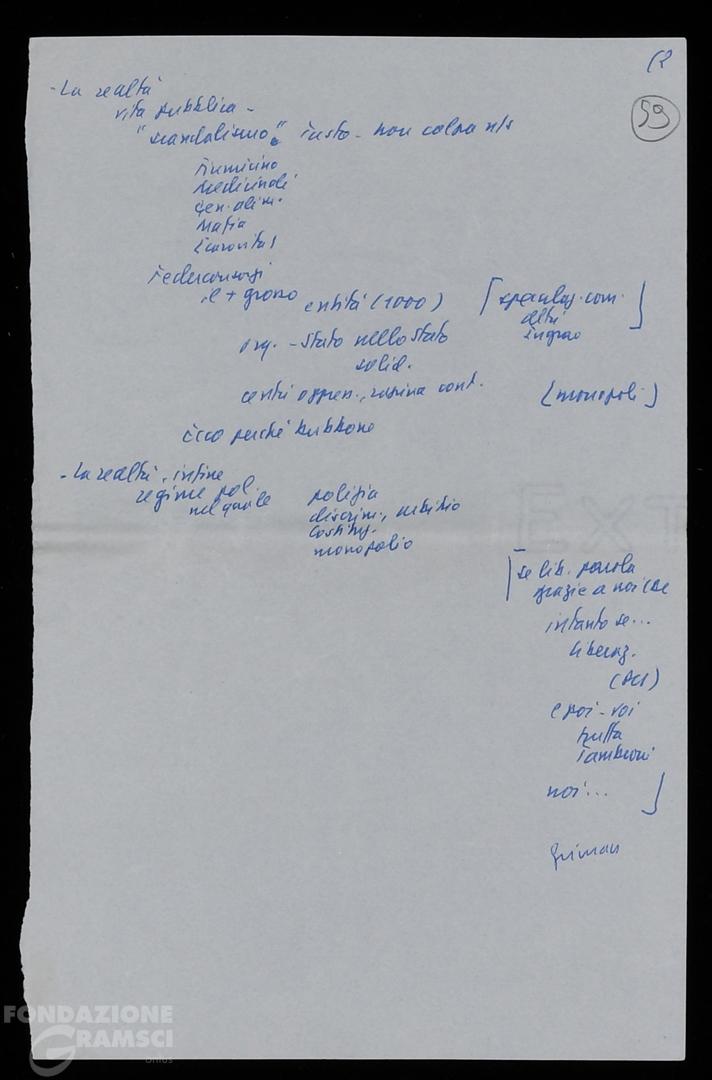 12
59
- La realtà
vita pubblica -
"scandalismo" giusto - non colpa ns
Fiumicino
Medicinali
gen. alim.
Mafia
Federconsorzi
il + grosso entità (1000) [speculaz. com.
altri
ingroo ]
org. - Stato nello Stato
solid.
centri oppress., rapina cont. (monopoli)
Ecco perché bubbone
- La realtà, infine
regime pol.
nel quale
polizia
discrim., arbitrio
Costituz.
monopolio
[se lib. parola
grazie a noi (se
intanto se...
liberaz.
e poi - voi
truffa
Tambroni
noi... ]
Grimau
EXT
FONDAZIONE
GRAMSCI
onlus